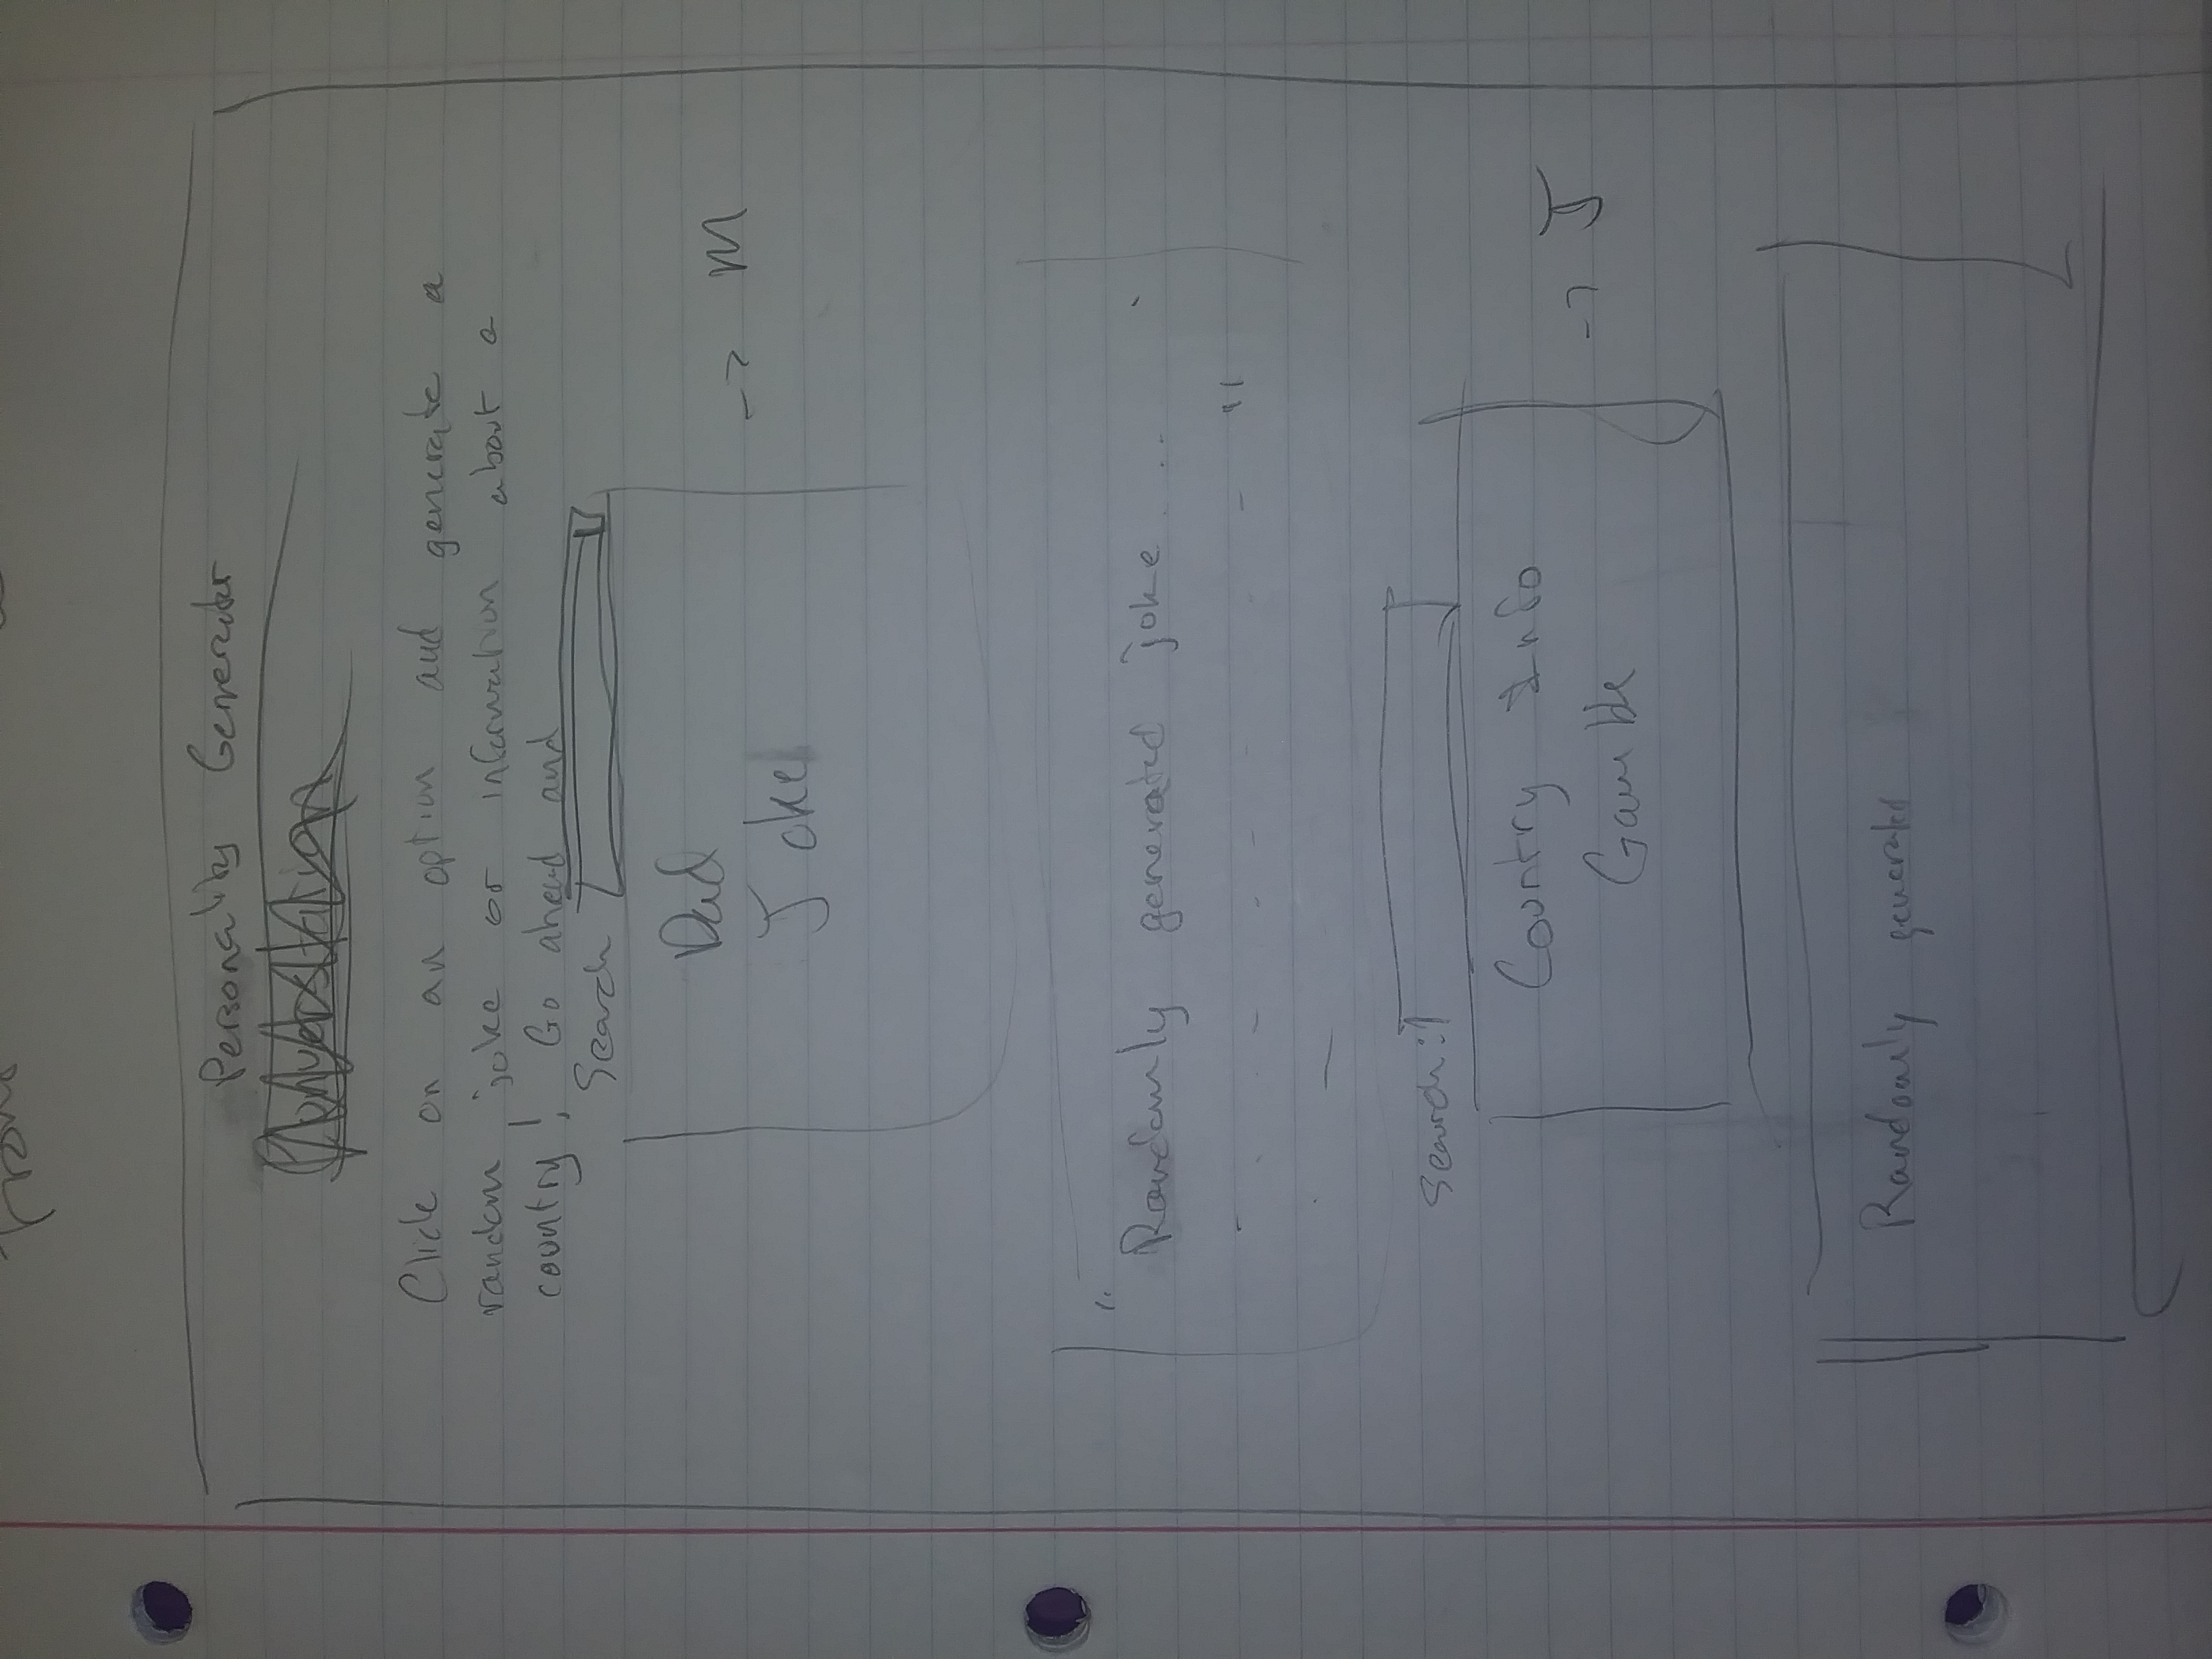 Personality Generator
Click on an option and generate a
random joke or information about a
country! Go ahead and
Search
Dad
Joke
-> M
" Randomly generated joke ...
"
Search:
Country Info
Gamble
-> J
Randomly generated